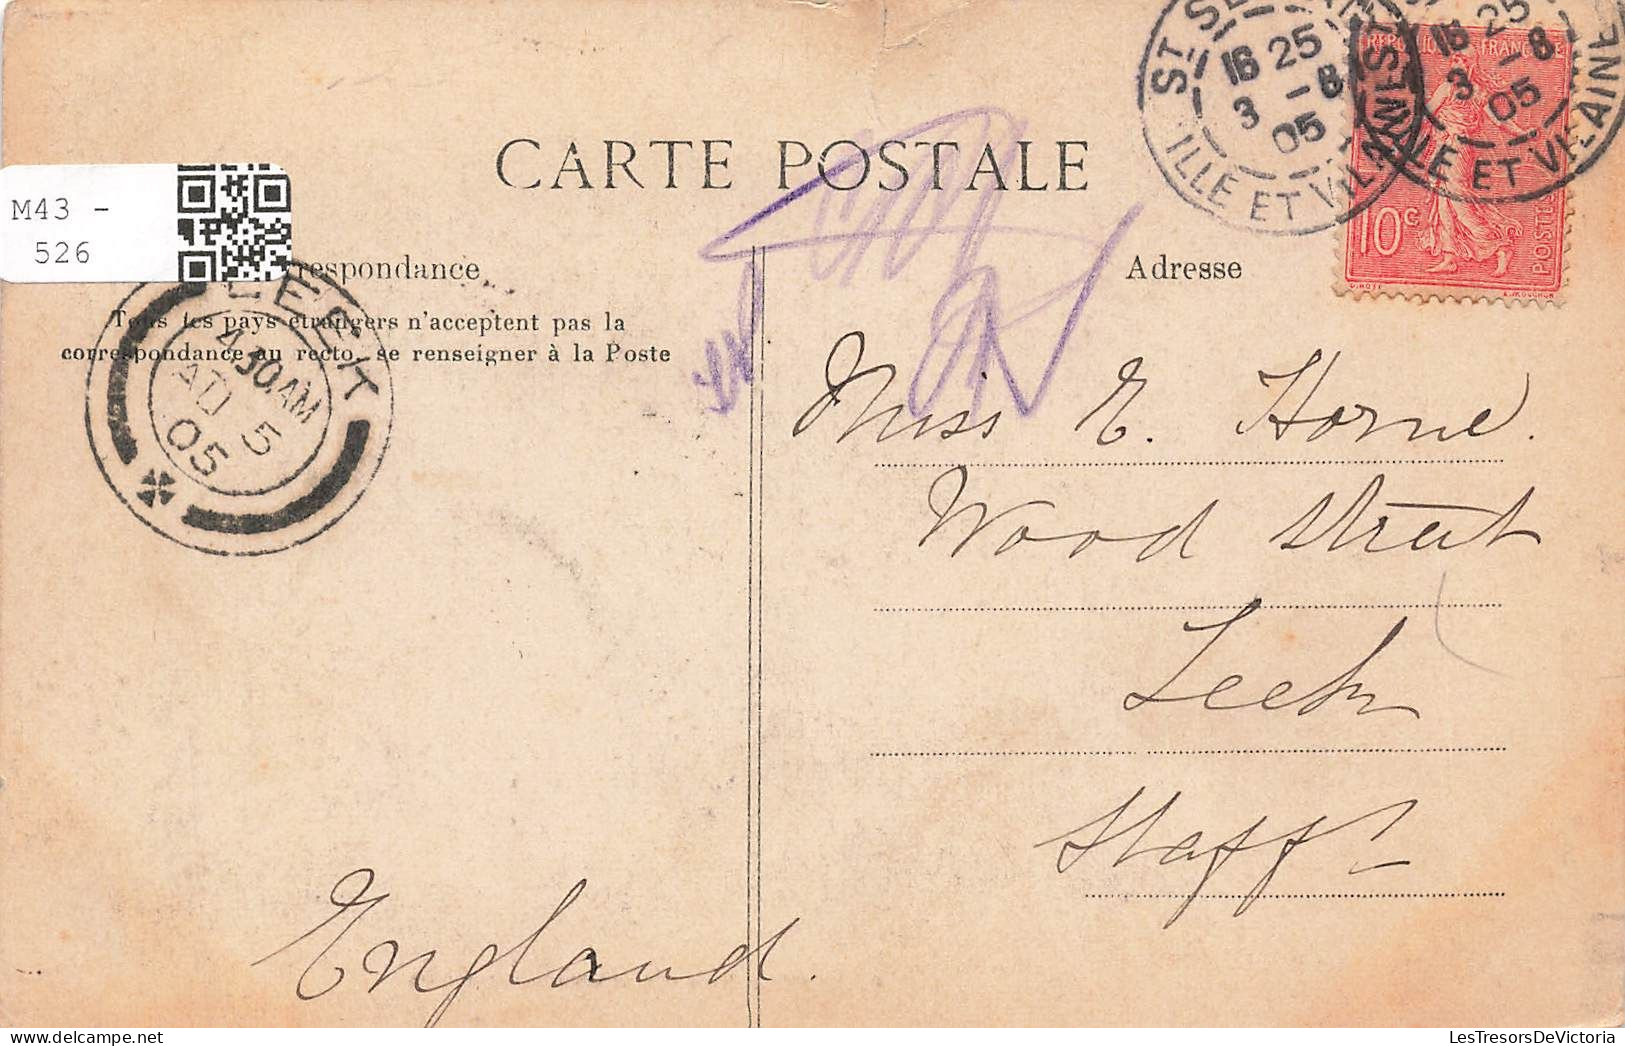 CARTE POSTALE
M43 -
526
respondance
Adresse
Tous les pays étrangers n'acceptent pas la
correspondance au recto, se renseigner à la Poste
ST SE
16 25
3 -8
05
ILLE ET VILAINE
16 25
3 -8
05
ILLE ET VILAINE
REPUBLIQUE FRANÇAISE
10c
POSTES
O. ROTY
E. MOUCHON
EEK
4 30AM
AU 5
05
Miss E. Horne.
Wood Street
Leek
Staffs
England.
LesTresorsDeVictoria.com